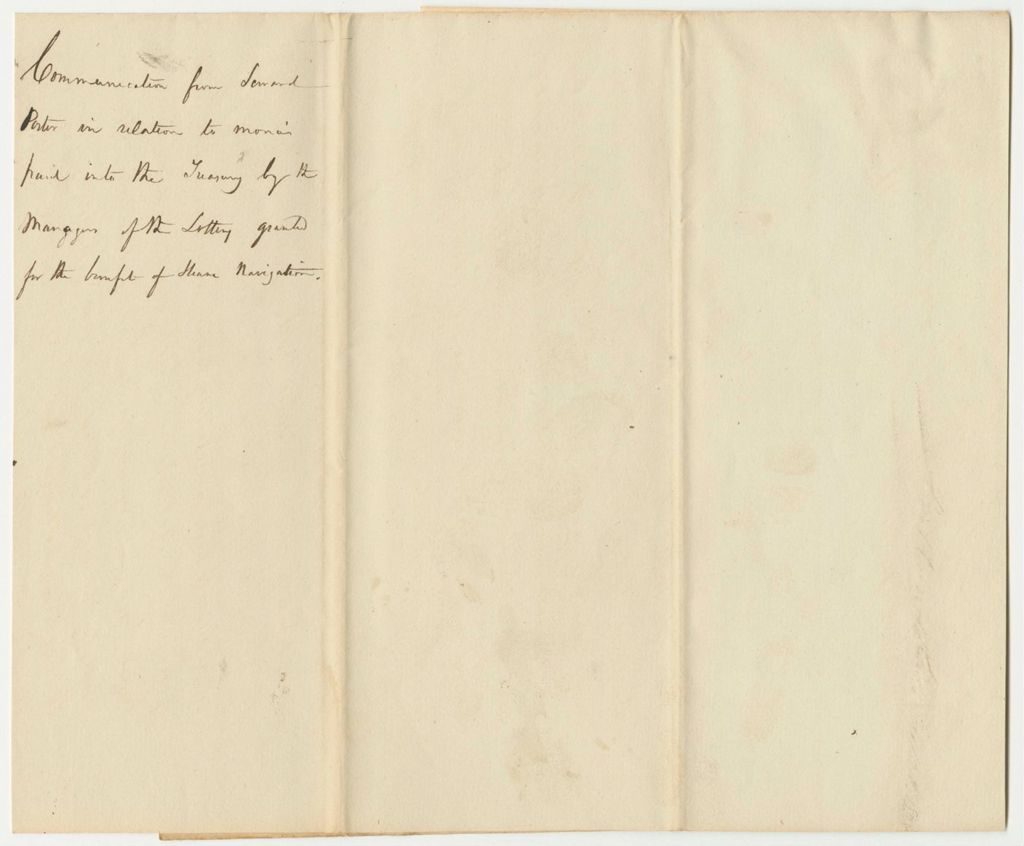 Communication from Seward
Porter in relation to monies
paid into the Treasury by the
Managers of the Lottery granted
for the benefit of Steam Navigation.